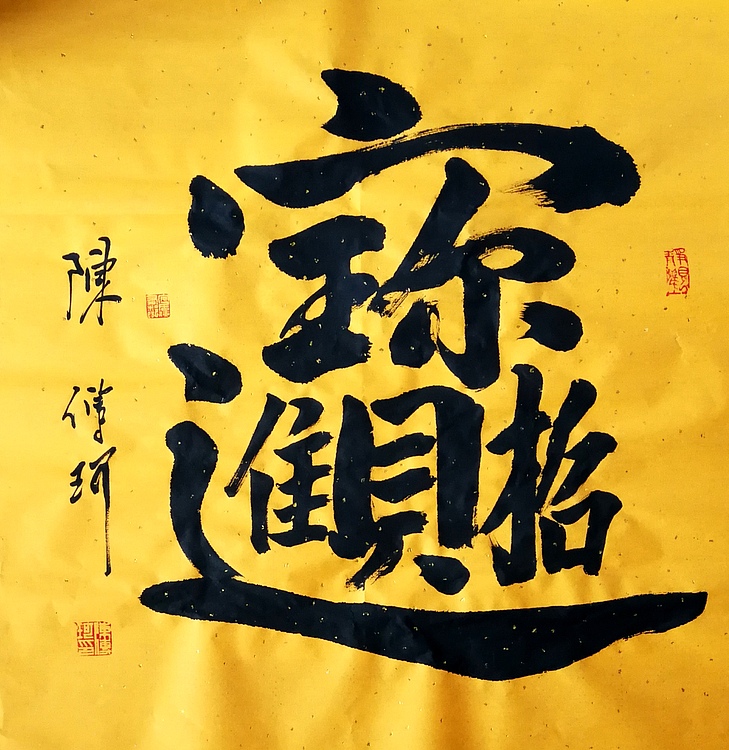 招財進寶
陳傳珂